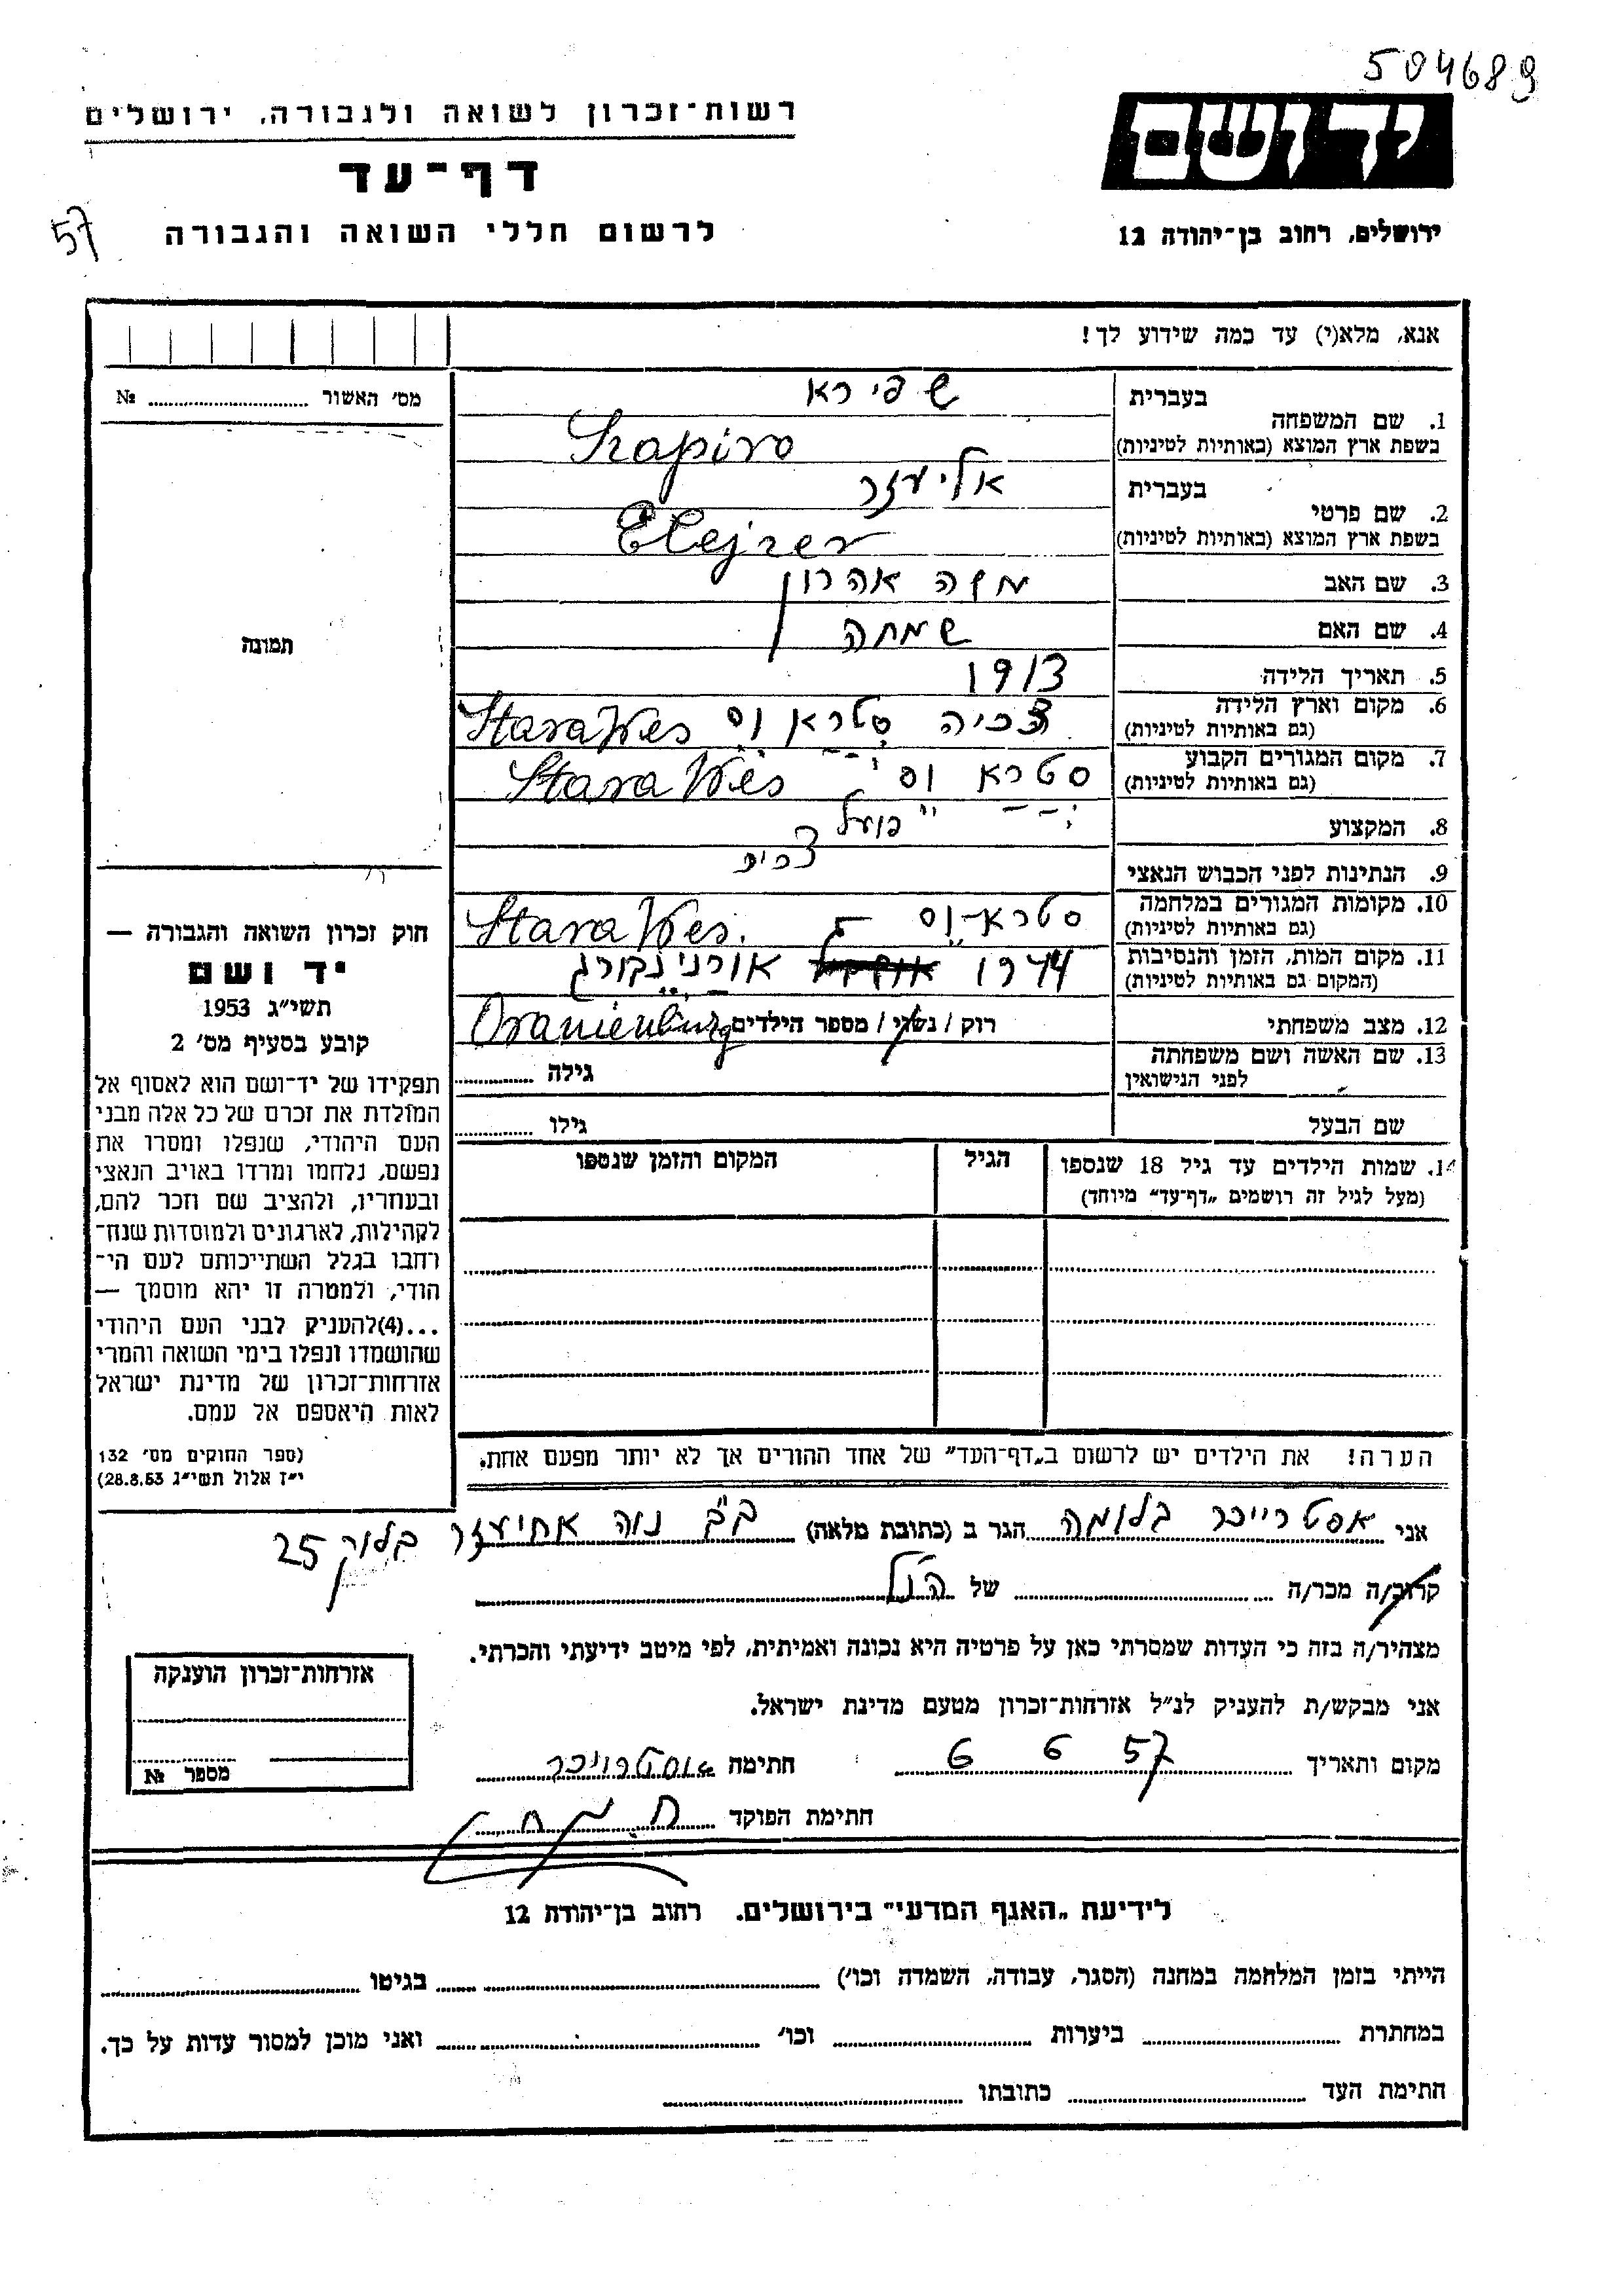 504689
יד ושם
ירושלים, רחוב בן־יהודה 12
רשות־זכרון לשואה ולגבורה, ירושלים
דף־עד
לרשום חללי השואה והגבורה
57
אנא, מלא(י) עד כמה שידוע לך!
מס׳ האשור № 
1. שם המשפחה
בעברית שפירא
בשפת ארץ המוצא (באותיות לטיניות) Szapiro
2. שם פרטי
בעברית אליעזר
בשפת ארץ המוצא (באותיות לטיניות) Elejzer
3. שם האב משה אהרון
4. שם האם שמחה
5. תאריך הלידה 1913
6. מקום וארץ הלידה
(גם באותיות לטיניות) צ׳כיה סטרא וס Stara Wes
7. מקום המגורים הקבוע
(גם באותיות לטיניות) סטרא וס Stara Wes
8. המקצוע פועל
9. הנתינות לפני הכבוש הנאצי
10. מקומות המגורים במלחמה
(גם באותיות לטיניות) סטרא־וס Stara Wes.
11. מקום המות, הזמן והנסיבות
(המקום גם באותיות לטיניות) 1944 אורנינבורג
Oranienburg
12. מצב משפחתי רוק / נשוי / מספר הילדים
13. שם האשה ושם משפחתה
לפני הנישואין
גילה
שם הבעל
גילו
14. שמות הילדים עד גיל 18 שנספו
(מעל לגיל זה רושמים „דף־עד״ מיוחד)
הגיל
המקום והזמן שנספו
הערה! את הילדים יש לרשום ב„דף־העד״ של אחד ההורים אך לא יותר מפעם אחת.
תמונה
חוק זכרון השואה והגבורה —
יד ושם
תשי״ג 1953
קובע בסעיף מס׳ 2
תפקידו של יד־ושם הוא לאסוף אל
המולדת את זכרם של כל אלה מבני
העם היהודי, שנפלו ומסרו את
נפשם, נלחמו ומרדו באויב הנאצי
ובעוזריו, ולהציב שם וזכר להם,
לקהילות, לארגונים ולמוסדות שנח־
רחבו בגלל השתייכותם לעם הי־
הודי, ולמטרה זו יהא מוסמך —
...(4)להעניק לבני העם היהודי
שהושמדו ונפלו בימי השואה והמרי
אזרחות־זכרון של מדינת ישראל
לאות היאספם אל עמם.
(ספר החוקים מס׳ 132
י״ז אלול תשי״ג 28.8.53)
אני אסטרייכר בלומה הגר ב (כתובת מלאה) ב״ב נוה אחיעזר בלוק 25
קרוב/ה מכר/ה של הנ״ל
מצהיר/ה בזה כי העדות שמסרתי כאן על פרטיה היא נכונה ואמיתית, לפי מיטב ידיעתי והכרתי.
אני מבקש/ת להעניק לנ״ל אזרחות־זכרון מטעם מדינת ישראל.
מקום ותאריך 6 6 57 חתימה אוסטרייכר
חתימת הפוקד
אזרחות־זכרון הוענקה
מספר №
לידיעת „האגף המדעי״ בירושלים, רחוב בן־יהודה 12
הייתי בזמן המלחמה במחנה (הסגר, עבודה, השמדה וכו׳) בגיטו
במחתרת ביערות וכו׳ ואני מוכן למסור עדות על כך.
חתימת העד כתובתו